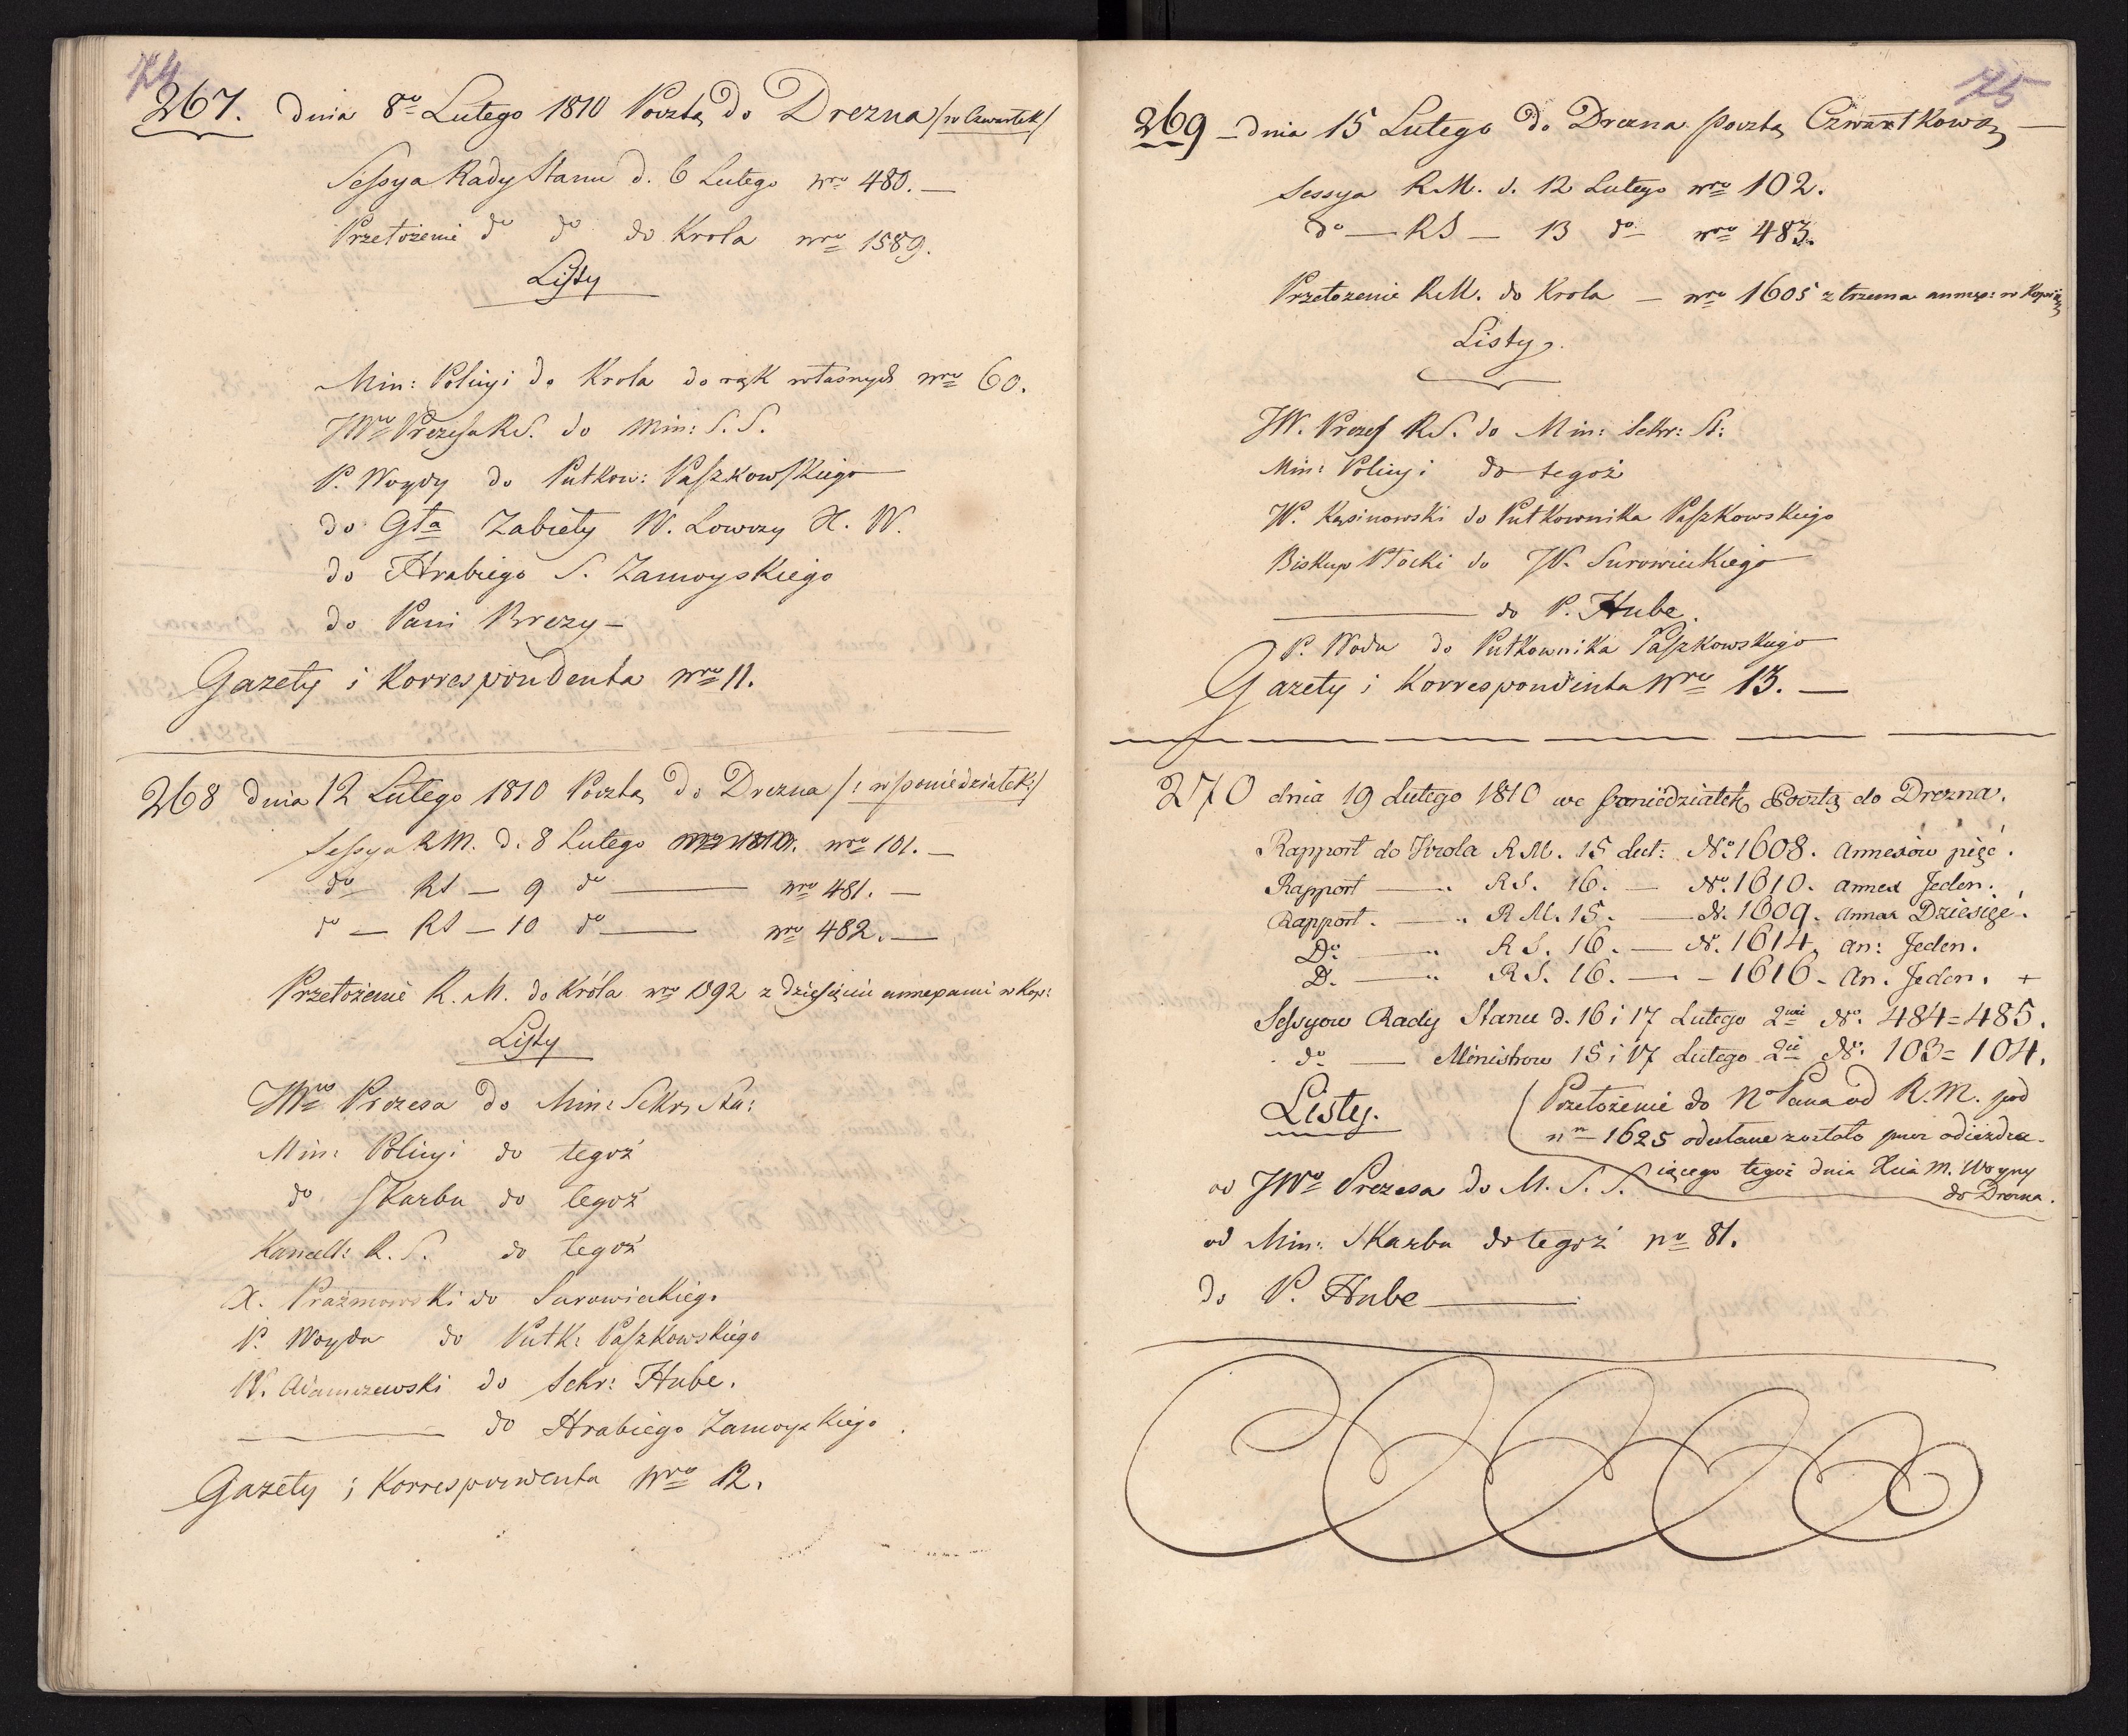 74
267. dnia 8º Lutego 1810 Pocztą do Drezna /w Czwartek/
Sessya Rady Stanu d. 6 Lutego nrº 480. —
Przełożenie dº dº do Krola nrº 1589.
Listy
Min: Policyi do Krola do rąk własnych nrº 60.
JWº Prezesa RS. do Min: S. S.
P. Woydy do Pułkow: Paszkowskiego
do Gła Zabiełły W. Lowczy X. W.
do Hrabiego S. Zamoyskiego
do Pani Brezy —
Gazety i Korrespondenta nrº 11.
268 dnia 12 Lutego 1810 Pocztą do Drezna /: w poniedziałek:/
Sessya RM. d. 8 Lutego nrº 101. —
dº RS — 9 dº — nrº 481. —
dº — RS — 10 dº — nrº 482. —
Przełożenie R. M. do Króla nrº 1592 z dziesięciu annexami w Kop:
Listy
JWº Prezesa do Min: Sekr: Sta:
Min: Policyi do tegoż
dº Skarbu do tegoż
Kancell: R. S. do tegoż
X. Prażmowski do Surowieckiego
P. Woyda do Pułk: Paszkowskiego
W. Adamczewski do Sekr: Hube.
— do Hrabiego Zamoyskiego.
Gazety i Korrespondenta Nrº 12.
75
269 — dnia 15 Lutego do Drezna pocztą Czwartkową —
Sessya R.M. d. 12 Lutego nrº 102.
dº — RS — 13 dº nrº 483.
Przełozenie R.M. do Krola — nrº 1605 z trzema annex: w Kopii
Listy.
JW. Prezes RS. do Min: Sekr: St:
Min: Policyi do tegoż
W. Kąsinowski do Pułkownika Paszkowskiego
Biskup Płocki do JW. Surowieckiego
— do P. Hube.
P. Woda do Pułkownika Paszkowskiego
Gazety i Korrespondenta Nrº 13. —
270 dnia 19 Lutego 1810 we poniedziałek Pocztą do Drezna.
Rapport do Krola R.M. 15 Lut: Nº 1608. annexów pięć.
Rapport — " RS. 16. — Nº 1610. annex Jeden.
Rapport. — " R.M. 15. — N. 1609. annex Dziesięć.
Dº — " RS. 16. — N. 1614, an: Jeden.
D. — " RS. 16. — - 1616 - an. Jeden. +
Sessyow Rady Stanu d. 16 i 17 Lutego 2wie Nº 484 = 485.
dº — Ministrow 15 i 17 Lutego 2ie Nº 103 = 104.
Listy.
Przełożenie do N. Pana od R.M. pod
nr 1625 odesłane zostało przez odieżdza-
iącego tegoż dnia Xcia M. Woyny
do Drezna.
od JWº Prezesa do M. S. S.
od Min: Skarbu do tegoż nº 81.
do P. Hube —